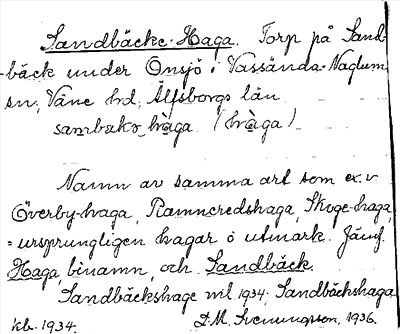 Sandbäcke-Haga. Torp på Sand-
-bäck under Onsjö i Vassända-Naglum
sn, Väne hd, Älfsborgs län.
sambæks_hàga (hàga)
Namn av samma art som ex.v.
Överby-haga, Ramneredshaga, Skoge-haga
= ursprungligen hagar å utmark. Jämf.
Haga, binamn, och Sandbäck.
Sandbäckshage mil. 1934. Sandbäckshaga
kb. 1934. D. M. Svenungsson, 1936.